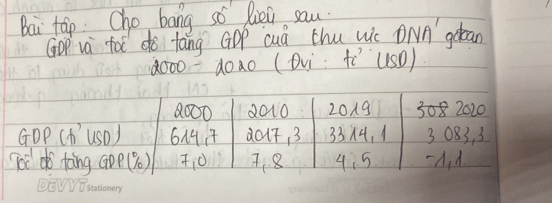 Bài tập. Cho bảng số liệu sau.
GDP và tốc độ tăng GDP của khu vực ĐNA gđoạn
2000 - 2020 (Đvị: tỉ USD)
2000 2010 2019 308 2020
GDP (tỉ USD) 614,7 2017,3 3314,1 3 083,3
Tốc độ tăng GDP (%) 7,0 7,8 4,5 -1,1
DEVYT Stationery